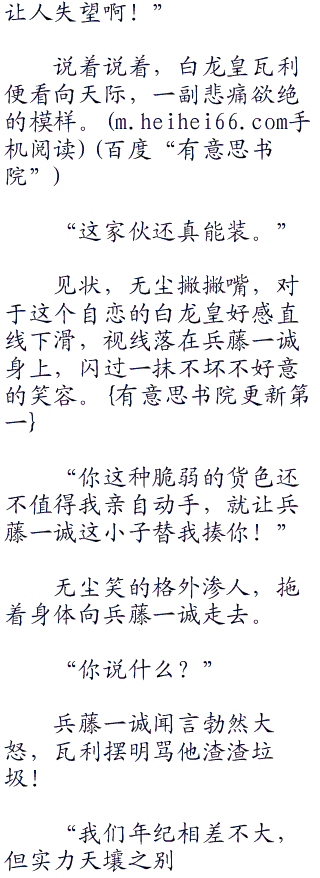 让人失望啊！”
说着说着，白龙皇瓦利
便看向天际，一副悲痛欲绝
的模样。(m.heihei66.com手
机阅读)(百度“有意思书
院”)
“这家伙还真能装。”
见状，无尘撇撇嘴，对
于这个自恋的白龙皇好感直
线下滑，视线落在兵藤一诚
身上，闪过一抹不坏不好意
的笑容。{有意思书院更新第
一}
“你这种脆弱的货色还
不值得我亲自动手，就让兵
藤一诚这小子替我揍你！”
无尘笑的格外渗人，拖
着身体向兵藤一诚走去。
“你说什么？”
兵藤一诚闻言勃然大
怒，瓦利摆明骂他渣渣垃
圾！
“我们年纪相差不大，
但实力天壤之别